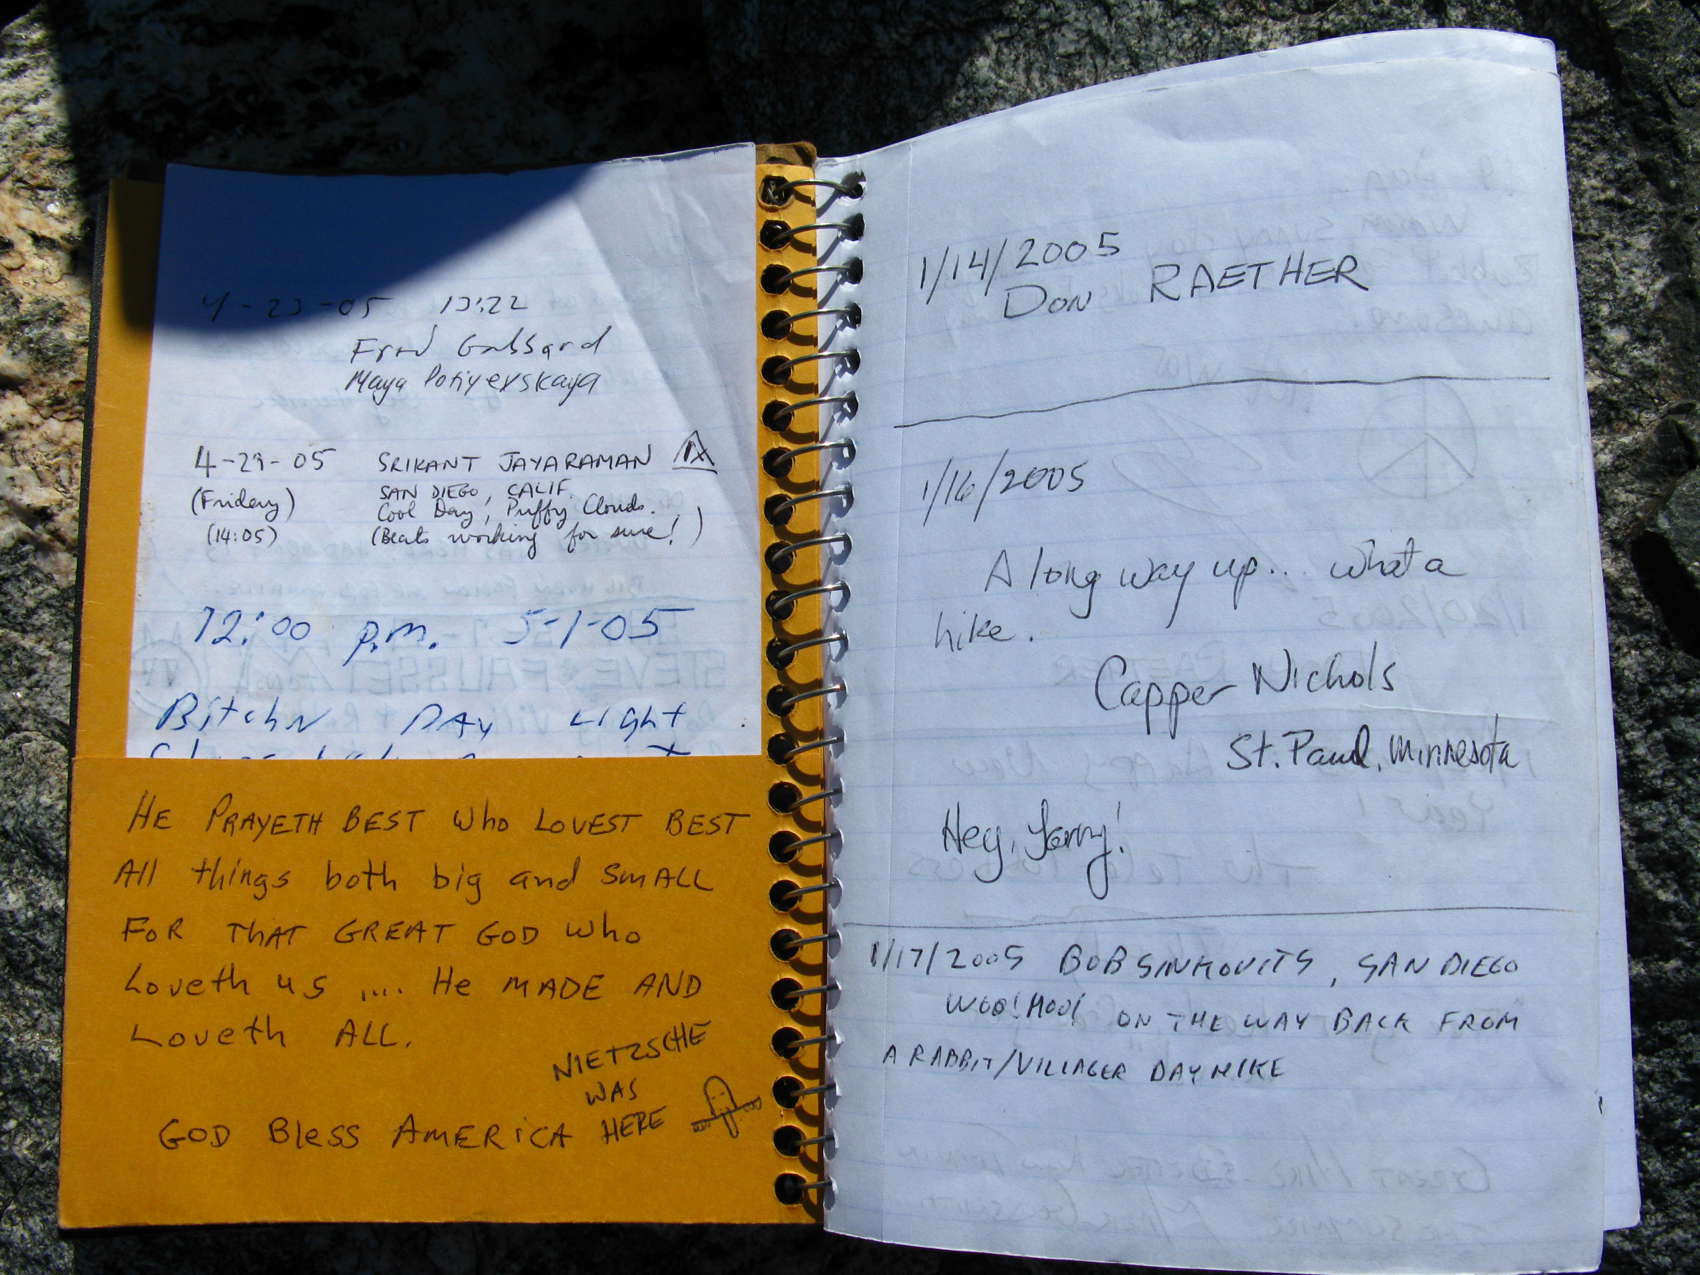 4-23-05 13:22
Fred Gabbard
Maya Potiyevskaya
4-29-05 SRIKANT JAYARAMAN
(Friday) SAN DIEGO, CALIF.
Cool Day, Puffy Clouds.
(14:05) (Beats working for sure!)
12:00 p.m. 5-1-05
Bitchn DAy Light
HE PRAYETH BEST Who LOVEST BEST
All things both big and SMALL
FOR THAT GREAT GOD Who
Loveth us .... He MADE AND
Loveth ALL.
NIETZSCHE
WAS
HERE
GOD Bless AMERICA
1/14/2005
DON RAETHER
1/16/2005
A long way up... what a
hike.
Capper Nichols
St. Paul, Minnesota
Hey,
1/17/2005 BOB SINKOVITS, SAN DIEGO
WOO! HOO! ON THE WAY BACK FROM
A RABBIT/VILLAGER DAY HIKE